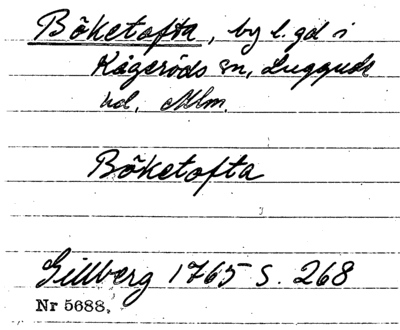 Böketofta, by l. gd i
Kågeröds sn, Luggude
hd, Mlm.
Böketofta
Gillberg 1765 s. 268
Nr 5688.